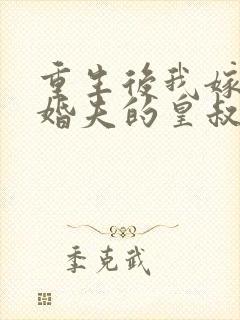 重生後我嫁
婚夫的皇叔
季克武